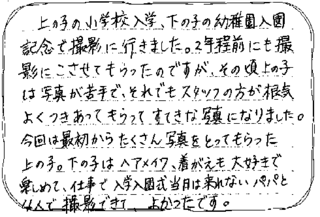 上の子の小学校入学、下の子の幼稚園入園
記念で撮影に行きました。2年程前にも撮
影にこさせてもらったのですが、その頃上の子
は写真が苦手で、それでもスタッフの方が根気
よくつきあってもらってすてきな写真になりました。
今回は最初からたくさん写真をとってもらった
上の子。下の子はヘアメイク、着がえも大好きで
楽しめて、仕事で入学入園式当日は来れないパパと
4人で撮影できて よかったです。